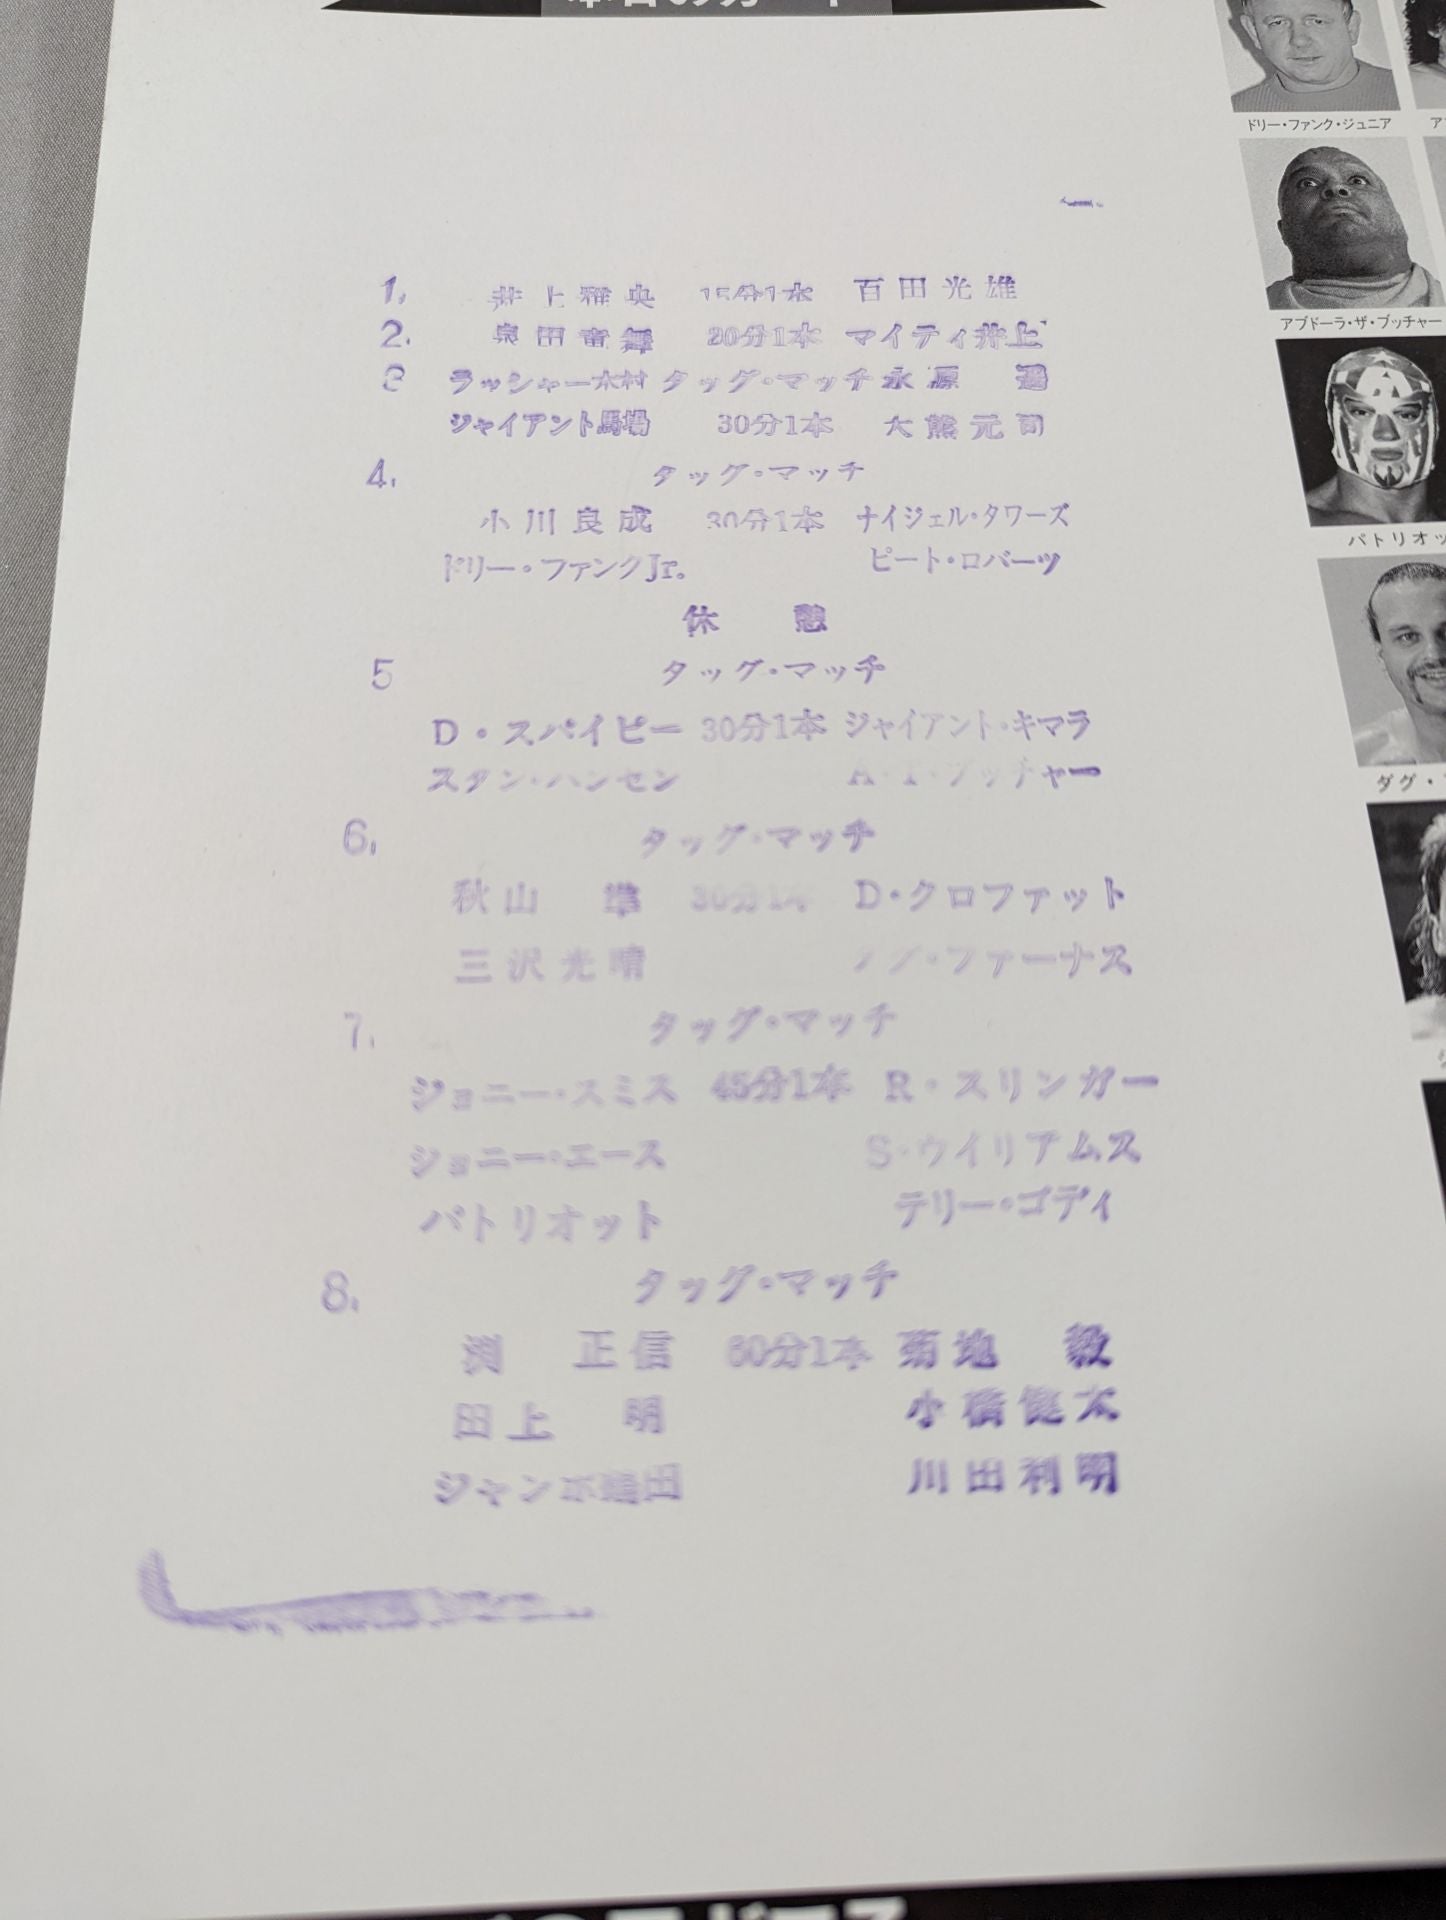 1. 井上雅央 15分1本 百田光雄
2. 泉田竜舞 20分1本 マイティ井上
3 ラッシャー木村 タッグ・マッチ 永源 遥
ジャイアント馬場 30分1本 大熊元司
4. タッグ・マッチ
小川良成 30分1本 ナイジェル・タワーズ
ドリー・ファンクJr. ピート・ロバーツ
休 憩
5 タッグ・マッチ
D・スパイビー 30分1本 ジャイアント・キマラ
スタン・ハンセン A・T・ブッチャー
6. タッグ・マッチ
秋山 準 30分1本 D・クロファット
三沢光晴 ダグ・ファーナス
7. タッグ・マッチ
ジョニー・スミス 45分1本 R・スリンガー
ジョニー・エース S・ウイリアムス
パトリオット テリー・ゴディ
8. タッグ・マッチ
渕 正信 60分1本 菊地 毅
田上 明 小橋健太
ジャンボ鶴田 川田利明
ドリー・ファンク・ジュニア
アブドーラ・ザ・ブッチャー
パトリオッ
ダグ・